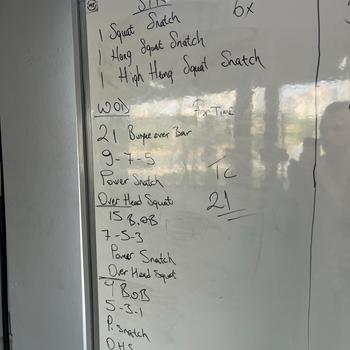 STR 6x
1 Squat Snatch
1 Hang Squat Snatch
1 High Hang Squat Snatch
WOD For Time
21 Burpee over Bar
9-7-5
Power Snatch TC
Over Head Squat 21
15 B.O.B
7-5-3
Power Snatch
Over Head Squat
9 B.O.B
5-3-1
P. Snatch
OHS